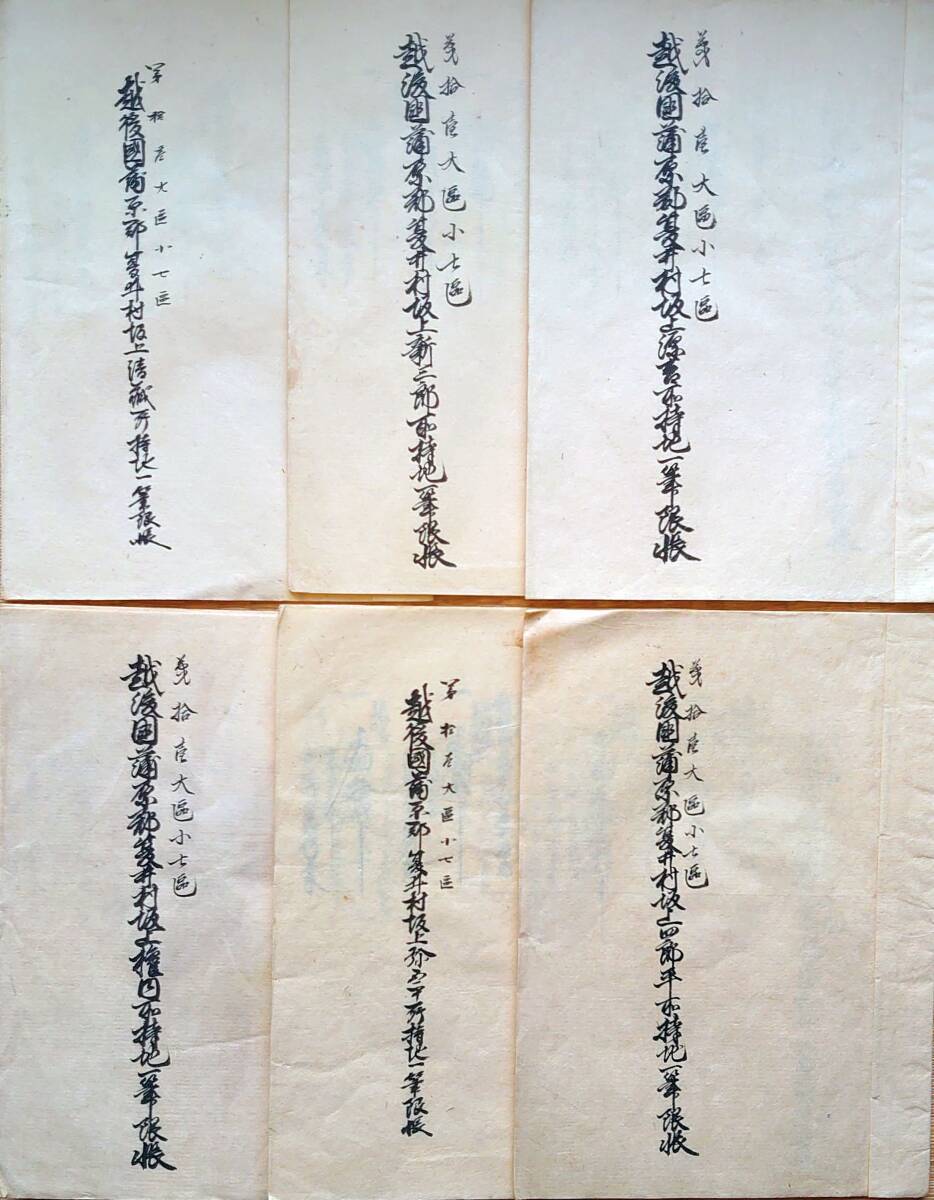 第拾壱大區小七區
越後國蒲原郡菱井村坂上源吉所持地一筆限帳
第拾壱大區小七區
越後國蒲原郡菱井村坂上新三郎所持地一筆限帳
第拾壱大區小七區
越後國蒲原郡菱井村坂上清蔵所持地一筆限帳
第拾壱大區小七區
越後國蒲原郡菱井村坂上四郎平所持地一筆限帳
第拾壱大區小七區
越後國蒲原郡菱井村坂上弥五十所持地一筆限帳
第拾壱大區小七區
越後國蒲原郡菱井村坂上権内所持地一筆限帳